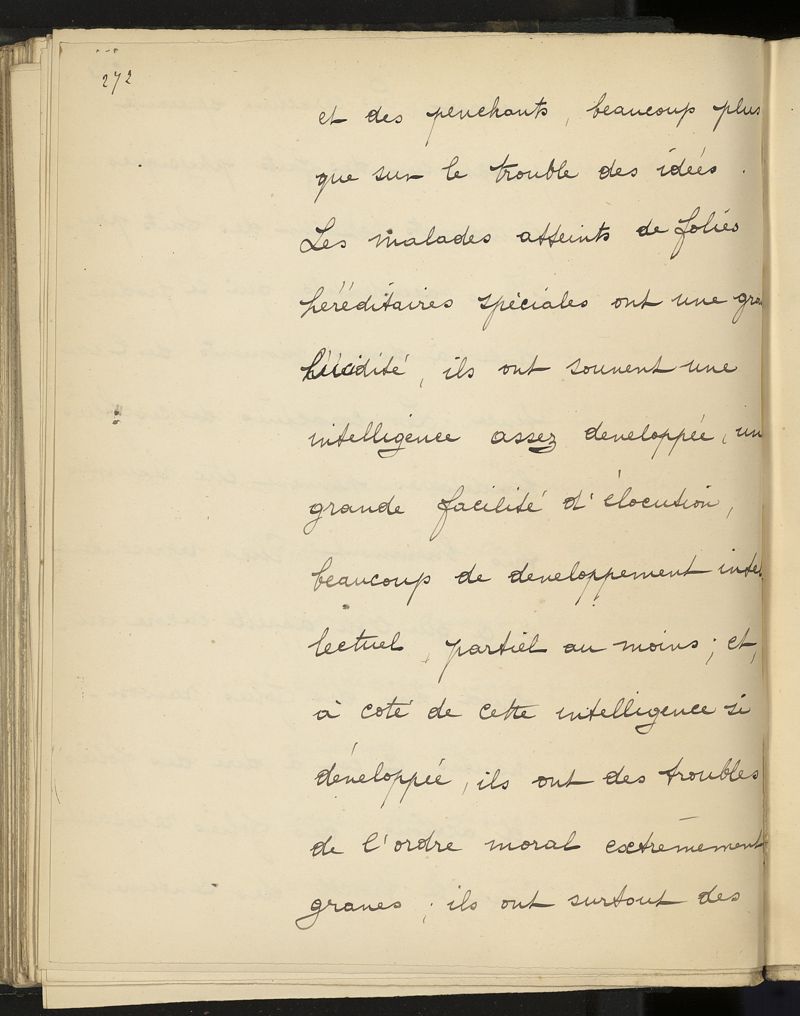 272
et des penchants, beaucoup plus
que sur le trouble des idées.
Les malades atteints de folies
héréditaires spéciales ont une gra
lucidité, ils ont souvent une
intelligence assez developpée, un
grande facilité d'élocution,
beaucoup de developpement intel
lectuel, partiel au moins; et,
à coté de cette intelligence si
développée, ils ont des troubles
de l'ordre moral extrêmement
graves; ils ont surtout des